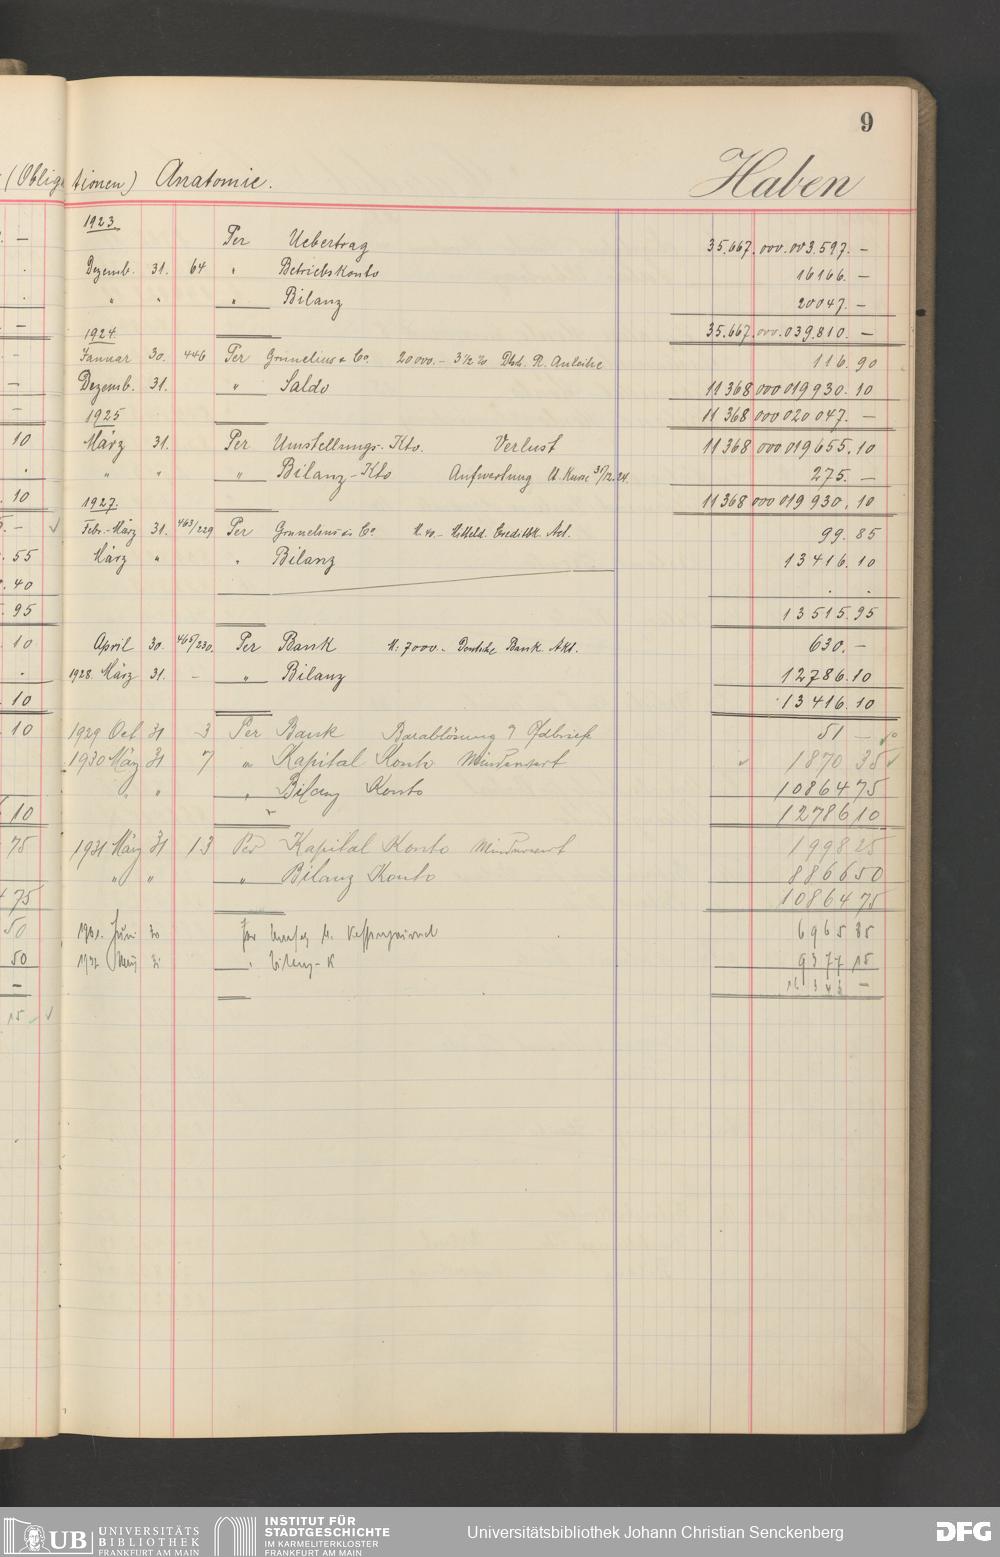 9
(Obligationen) Anatomie. Haben
1923.
– Per Uebertrag 35.667.000.003.597. –
Dezemb. 31. 64 " Betriebskonto 16166. –
" " " Bilanz 20047. –
– 35.667.000.039.810. –
1924.
Januar 30. 446 Per Grunelius & Co. 20000.– 3½% Dtsch. R. Anleihe 116.90
– Dezemb. 31. " Saldo 11 368 000 019 930.10
– 11 368 000 020 047. –
1925
10 März 31. Per Umstellungs-Kto. Verlust 11 368 000 019 655.10
" " " Bilanz-Kto Aufwertung lt. Kurse 31/12.24. 275. –
10 11 368 000 019 930.10
1927.
– Febr.-März 31. 463/229 Per Grunelius & Co. M. 40.– Creditbk. Akt. 99.85
55 März " " Bilanz 13416.10
40
95 13515.95
10 April 30. 465/230. Per Bank M. 7000.– Deutsche Bank Akt. 630. –
1928. März 31. – " Bilanz 12786.10
10 13416.10
10 1929 Oct 31 3 Per Bank Barablösung Pfdbriefe 51 –
1930 März 31 7 " Kapital Konto Minderwert 1870 35
" " " Bilanz Konto 10864 75
10 12786 10
75 1931 März 31 13 Per Kapital Konto Minderwert 1998 25
" " " Bilanz Konto 8866 50
75 10864 75
50 1931. Juni 30 6965 85
50 1932 31 " Bilanz-K 9377 15
– 16343 –
15
UB UNIVERSITÄTS
BIBLIOTHEK
FRANKFURT AM MAIN
INSTITUT FÜR
STADTGESCHICHTE
IM KARMELITERKLOSTER
FRANKFURT AM MAIN
Universitätsbibliothek Johann Christian Senckenberg
DFG